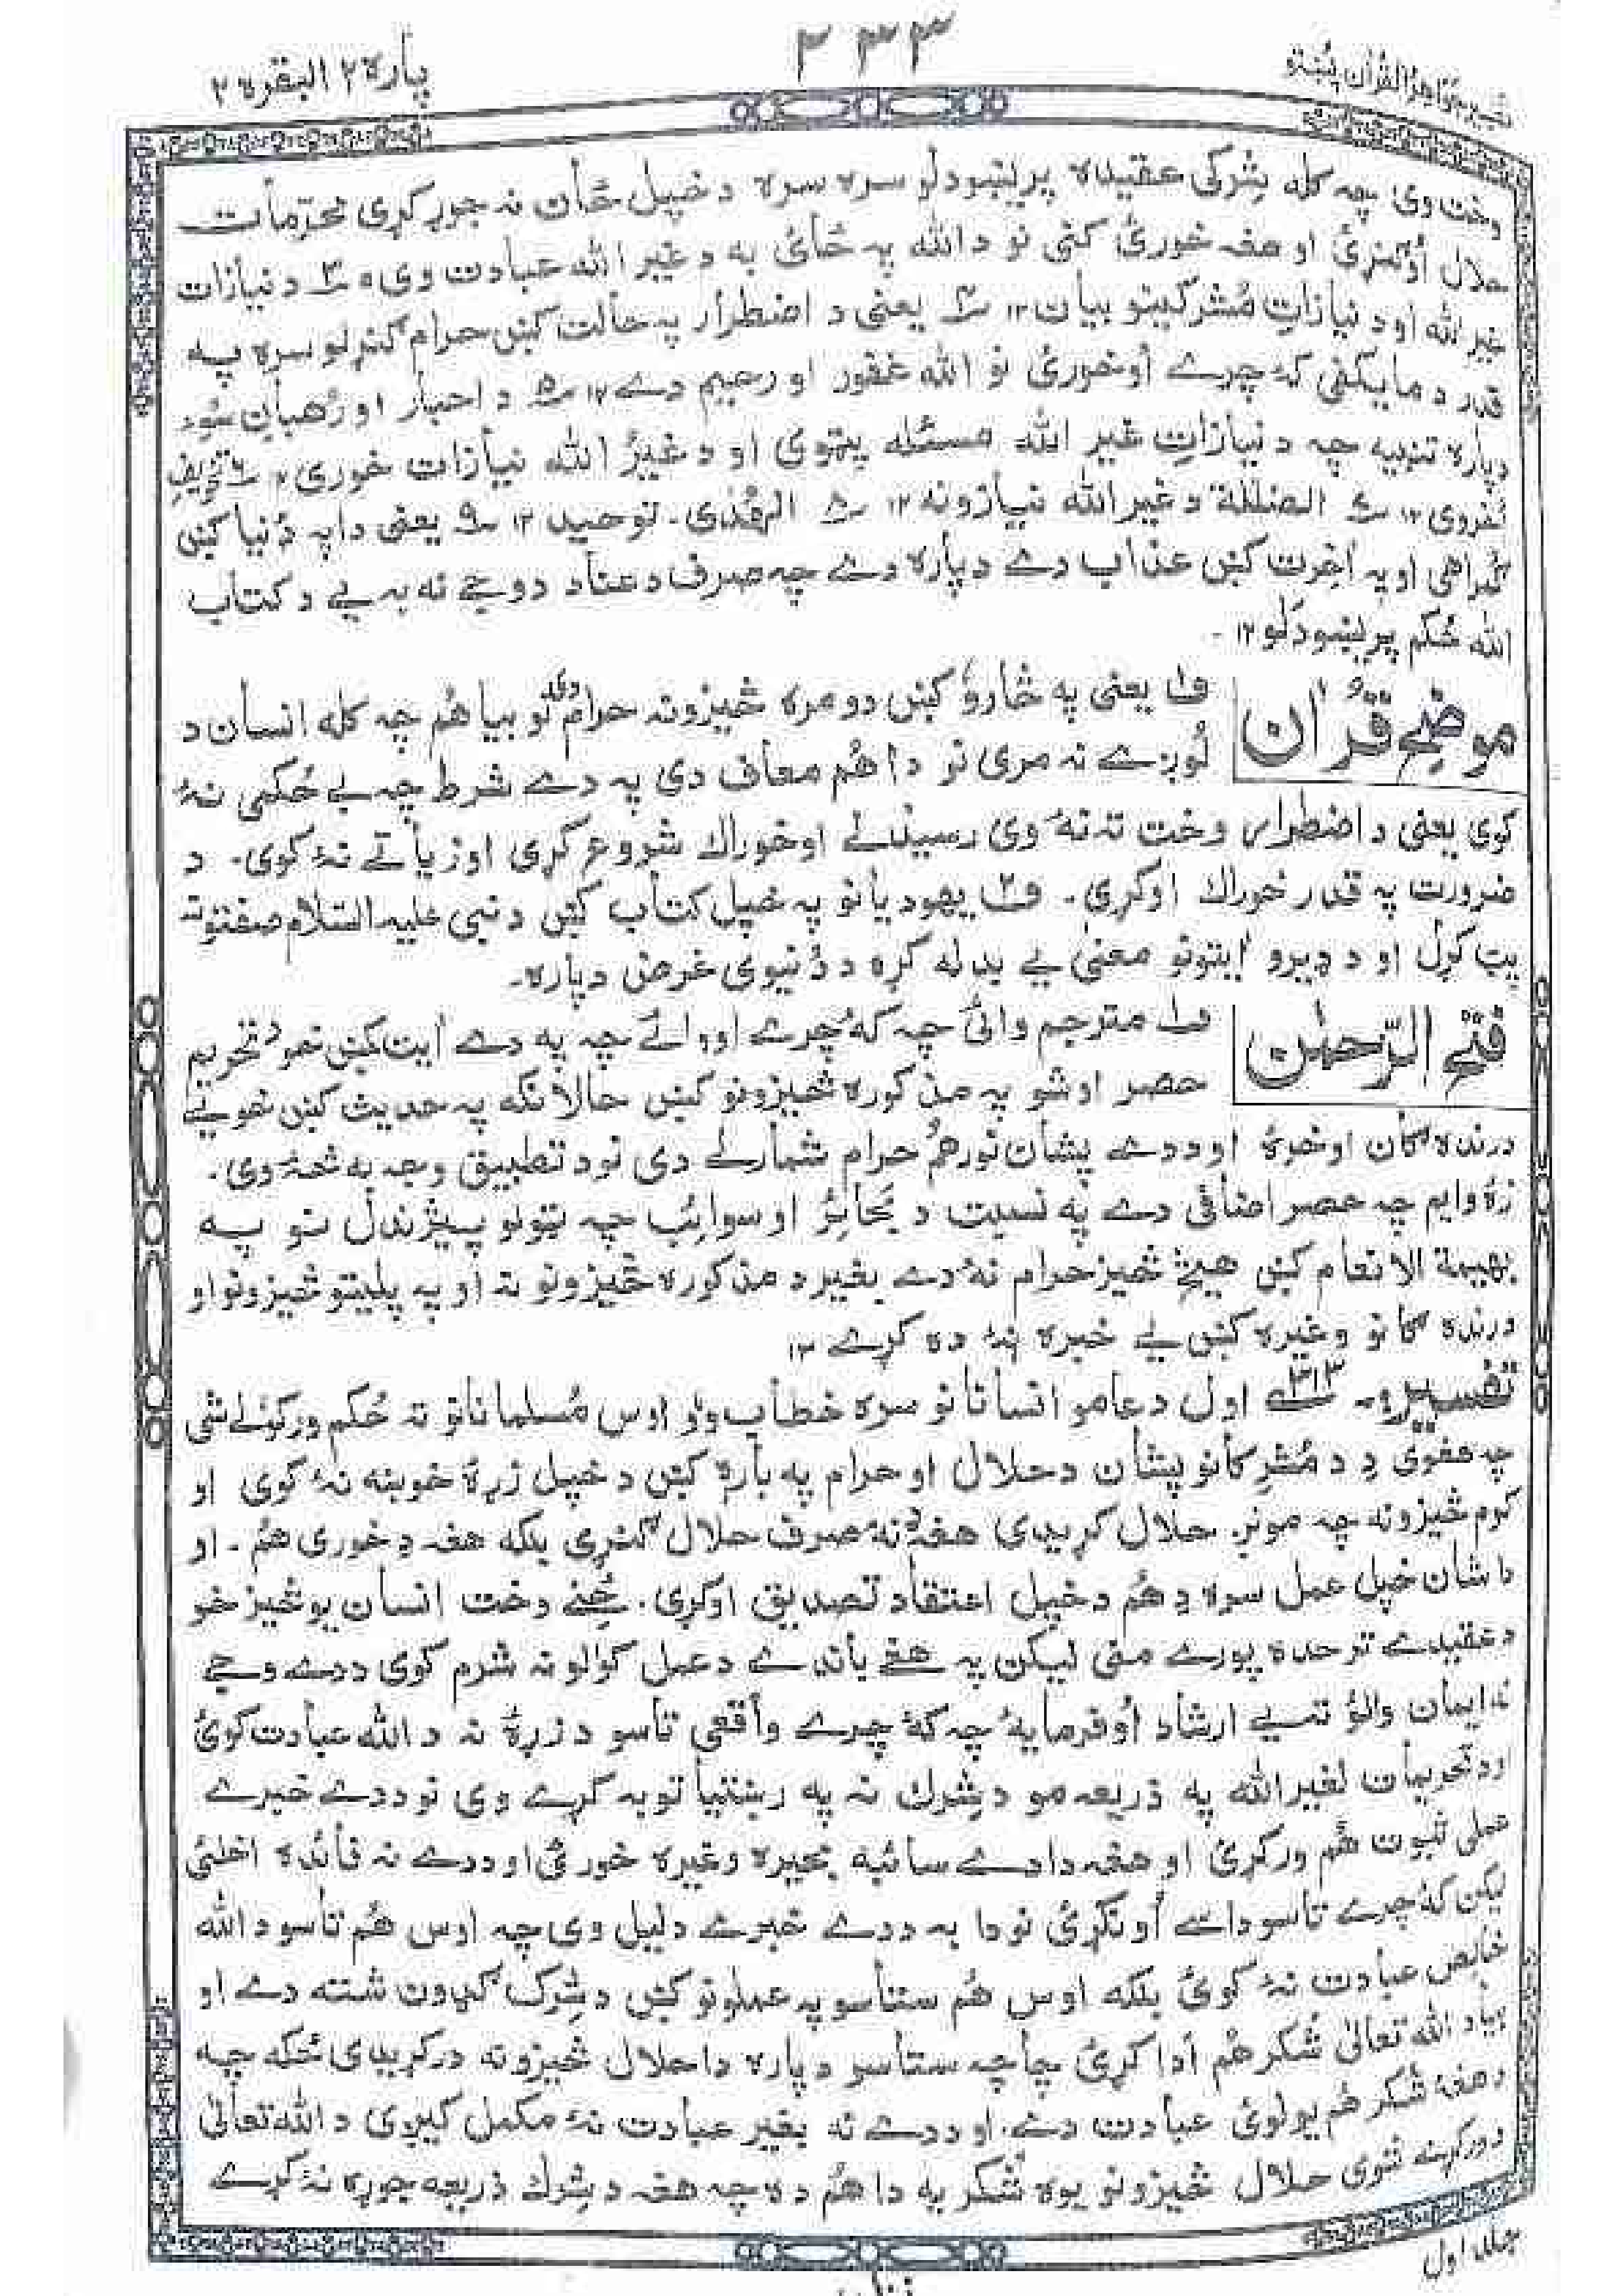 تفسیر جواهر القرآن پښتو
۳۳۳
پاره ۲ البقره ۲
وخت وی چه کله شرکی عقیده پریښودلو سره سره د خپل ځان نه جوړ کړی محرّمات
حلال اُوګنړئ او هغه خورئ کنی نو د الله په ځائ به د غیر الله عبادت وی د نیازات
غیر الله او د نیازات مشرکینو بیان ۱۲ یعنی د اضطرار په حالت کښ حرام ګنړلو سره په
قدر د مایکفی کهٔ چرے اُوخورئ نو الله غفور او رحیم دے ۱۲ د احبار او رُهبان سُوء
دپاره تنبیه چه د نیازات غیر الله مسئله پټوی او د غیرُ الله نیازات خوری
اُخروی ۱۲ الضللة د غیر الله نیازونه ۱۲ الهُدٰی۔ توحید ۱۲ یعنی دا په دُنیا کښ
ګمراهی او په اٰخرت کښ عذاب دے دپاره دے چه صرف د عناد د وجے نه به یے د کتاب
الله حُکم پریښودلو ۱۲۔
موضِح قرُاٰن
ف۱ یعنی په څاروؤ کښ دومره څیزونه حرام دی نو بیا هُم چه کله انسان د
لُوږے نه مری نو دا هُم معاف دی په دے شرط چه بے حُکمی نهٔ
کوی یعنی د اضطرار وخت ته نهٔ وی رسیدلے او خوراك شروع کړی او زیاتے نهٔ کوی۔ د
ضرورت په قدر خوراك اوکړی۔ ف۲ یهودیانو په خپل کتاب کښ د نبی علیه السّلام صفتونه
پټ کړل او د ډیرو اٰیتونو معنیٰ یے بدله کړه د دُنیوی غرض دپاره۔
فتح الرّحمٰن
ف۱ مترجم وائی چه کهٔ چرے اووائے چه په دے اٰیت کښ خو د تحریم
حصر اوشو په مذکوره څیزونو کښ حالانکه په حدیث کښ خو یے
درنده ګان او خرهٔ او د دے پشان نور هُم حرام شمارلے دی نو د تطبیق وجه به څهٔ وی۔
زهٔ وایم چه حصر اضافی دے په نسبت د بَحائِر او سوائِب چه بتونو پیژندل نو په
بهیمة الانعام کښ هیڅ څیز حرام نهٔ دے بغیر د مذکوره څیزونو نه او په پلیتو څیزونو او
درنده ګانو وغیره کښ یے خبره نهٔ ده کړے ۱۲
تفسیر۔ ۳۱۳ اول د عامو انسانانو سره خطاب وو او اوس مُسلمانانو ته حُکم ورکولے شی
چه هغوی دِ د مُشرکانو پشان د حلال او حرام په باره کښ د خپل زړهٔ خوښه نهٔ کوی او
کوم څیزونه چه مونږ حلال کړیدی هغه دِ نهٔ صرف حلال ګنړی بلکه هغه دِ خوری هُم۔ او
دا شان خپل عمل سره دِ هُم د خپل اعتقاد تصدیق اوکړی۔ ځنے وخت انسان یو څیز خو
د عقیدے تر حده پورے منی لیکن په هغے باندے د عمل کولو نه شرم کوی د دے وجے
نه ایمان والوٗ ته یے ارشاد اُوفرمایهٔ چه کهٔ چرے واقعی تاسو د زړهٔ نه د الله عبادت کوئ
او د تحریمات لغیر الله په ذریعه مو د شرك نه په رښتیا توبه کړے وی نو د دے خبرے
عملی ثبوت هُم ورکړئ او هغه دا دے سائبه بحیره وغیره خورئ او د دے نه فائده اخلئ
لیکن کهٔ چرے تاسو داسے اُونکړئ نو دا به د دے خبرے دلیل وی چه اوس هُم تاسو د الله
خالِص عبادت نهٔ کوئ بلکه اوس هُم ستاسو په عملونو کښ د شرك ګډون شته دے او
بیا د الله تعالیٰ شُکر هُم اَدا کړئ چا چه ستاسو دپاره دا حلال څیزونه درکړیدی ځکه چه
د هغهٔ شکر هُم یو لوئ عبادت دے۔ او د دے نه بغیر عبادت نهٔ مکمل کیږی د الله تعالیٰ
د ورکړے شوی حلال څیزونو یوه شُکریه دا هُم ده چه هغه د شرك ذریعه جوړه نهٔ کړے
جلد اول